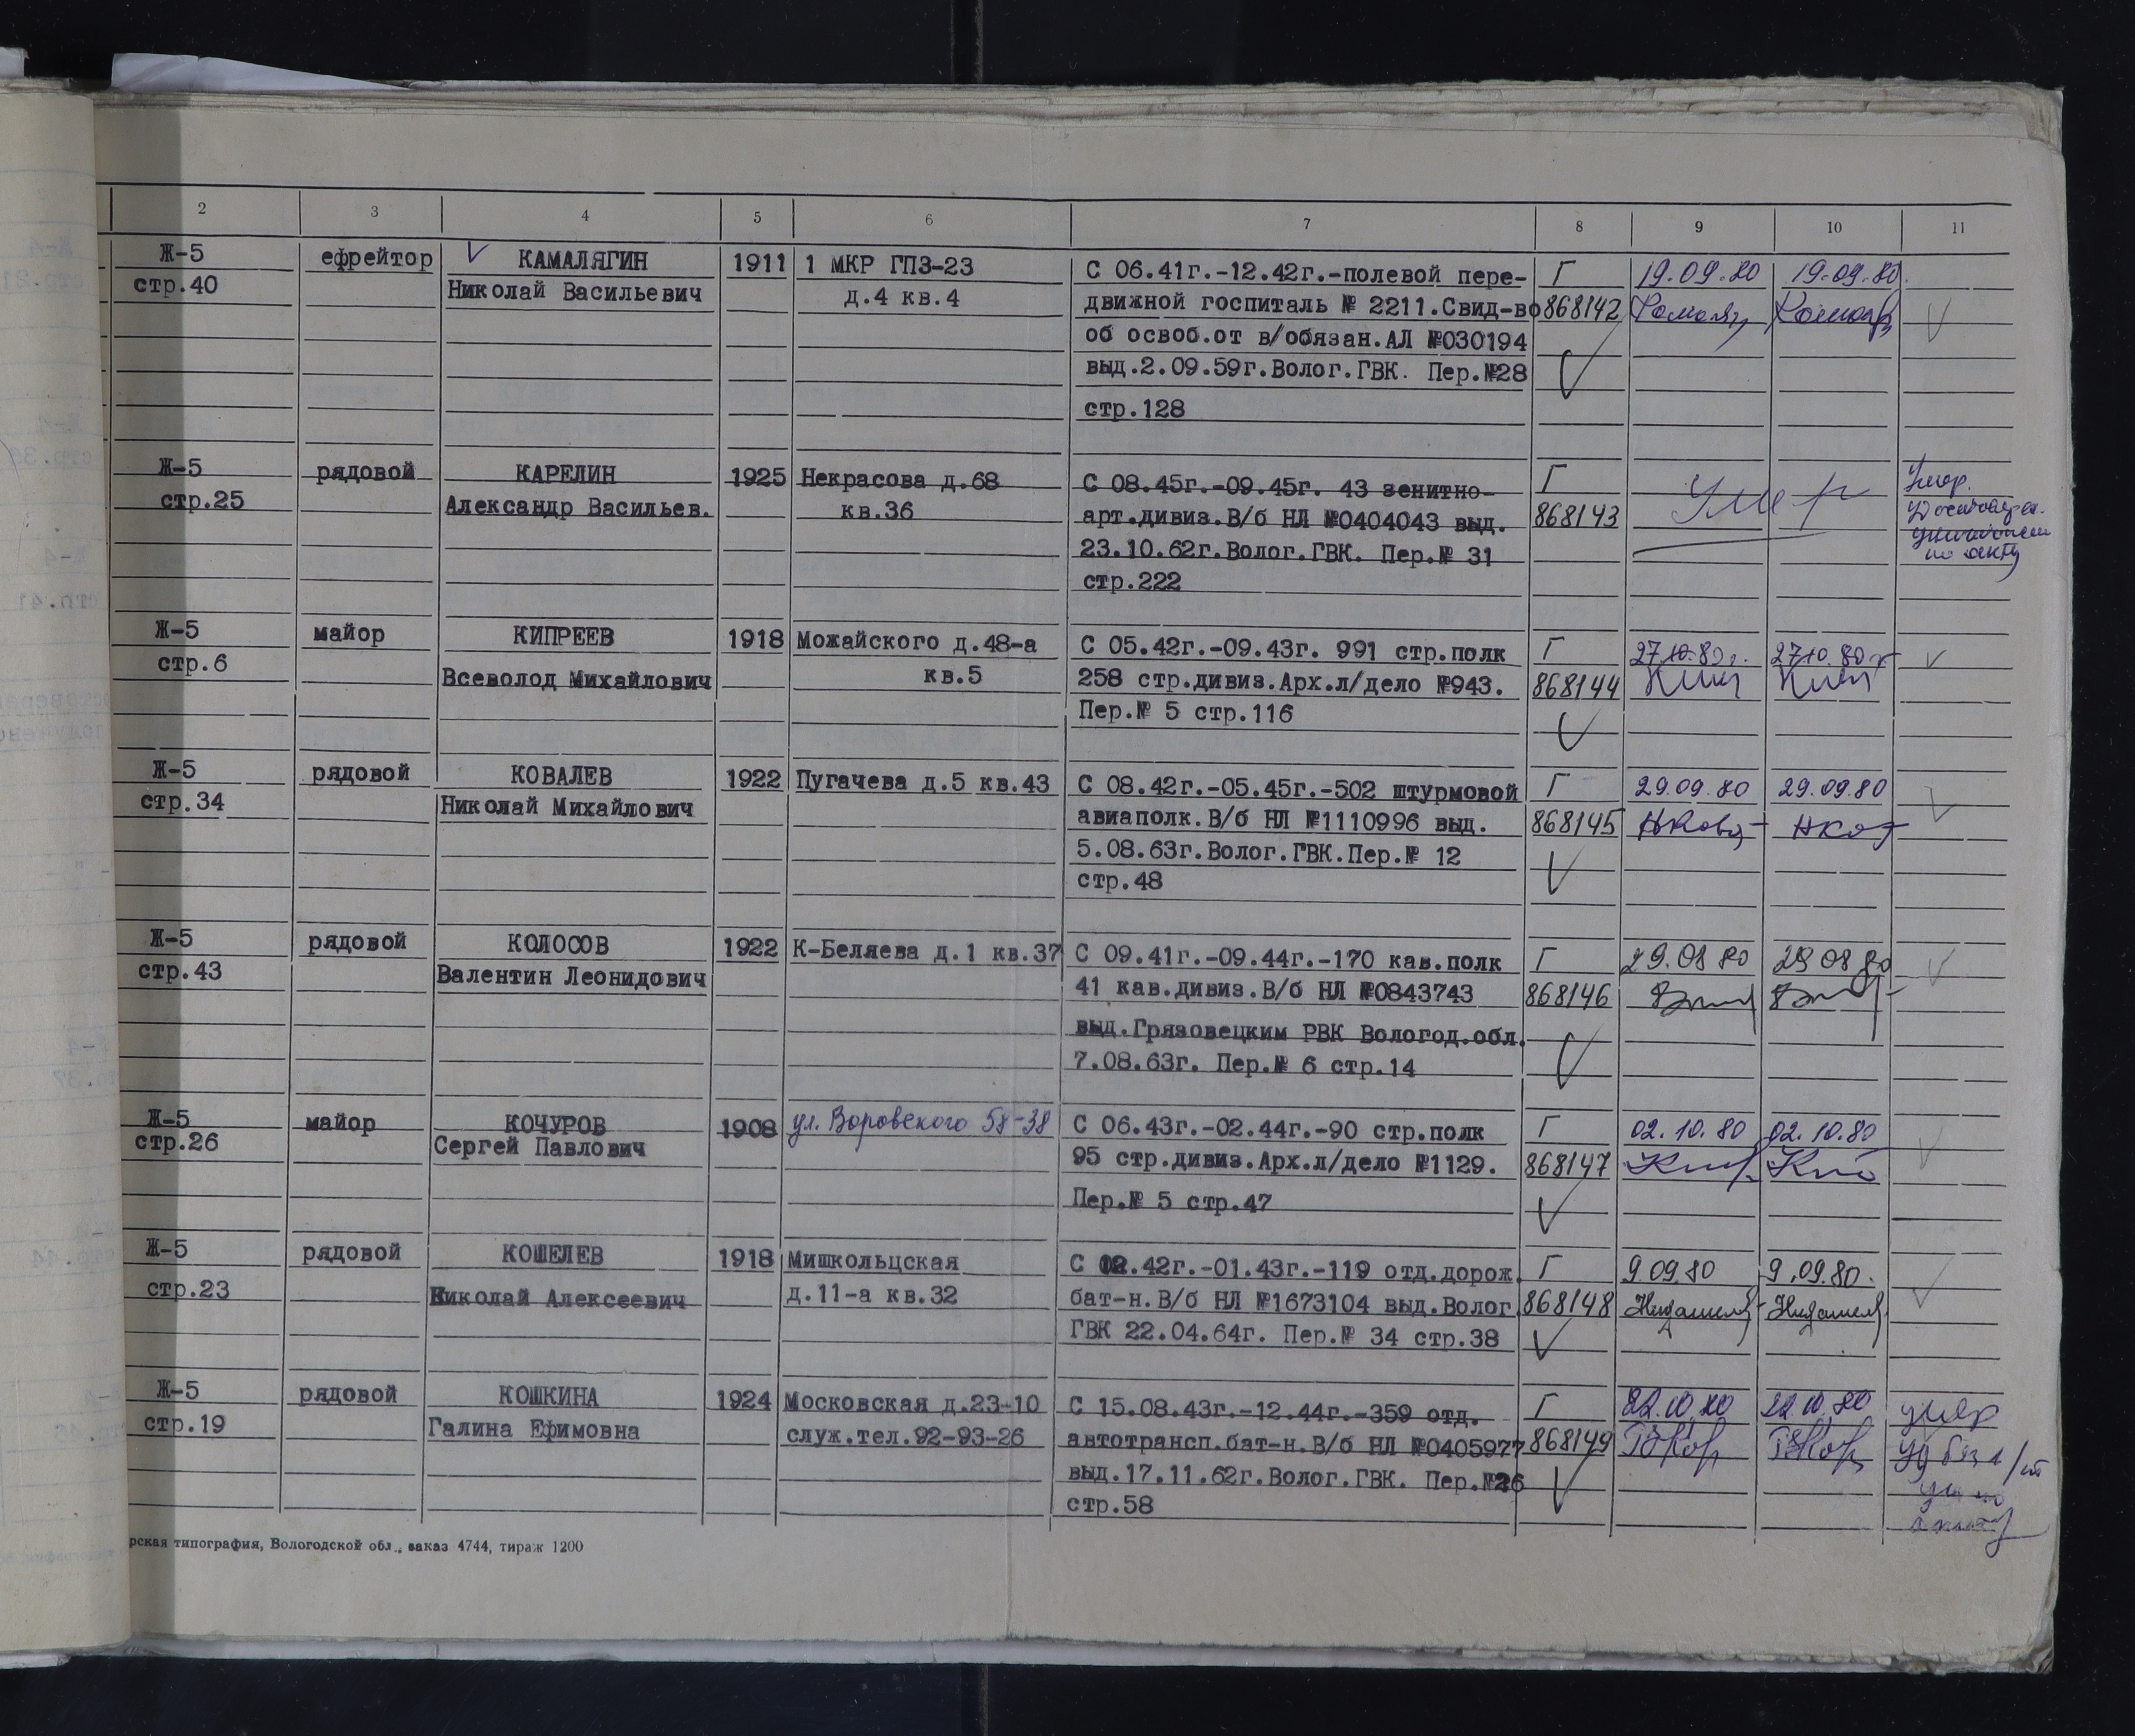 2 3 4 5 6 7 8 9 10 11
Ж-5 ефрейтор КАМАЛЯГИН 1911 1 МКР ГПЗ-23 С 06.41г.-12.42г.-полевой пере- Г 19.09.80 19.09.80.
стр.40 Николай Васильевич д.4 кв.4 движной госпиталь № 2211.Свид-во 868142
об освоб.от в/обязан.АЛ №030194
выд.2.09.59г.Волог.ГВК. Пер.№28
стр.128
Ж-5 рядовой КАРЕЛИН 1925 Некрасова д.68 С 08.45г.-09.45г. 43 зенитно- Г Умер Умер.
стр.25 Александр Васильев. кв.36 арт.дивиз.В/б НЛ №0404043 выд. 868143
23.10.62г.Волог.ГВК. Пер.№ 31 по акту
стр.222
Ж-5 майор КИПРЕЕВ 1918 Можайского д.48-а С 05.42г.-09.43г. 991 стр.полк Г 27.10.80г. 27.10.80г
стр.6 Всеволод Михайлович кв.5 258 стр.дивиз.Арх.л/дело №943. 868144
Пер.№ 5 стр.116
Ж-5 рядовой КОВАЛЕВ 1922 Пугачева д.5 кв.43 С 08.42г.-05.45г.-502 штурмовой Г 29.09.80 29.09.80
стр.34 Николай Михайлович авиаполк.В/б НЛ №1110996 выд. 868145
5.08.63г.Волог.ГВК.Пер.№ 12
стр.48
Ж-5 рядовой КОЛОСОВ 1922 К-Беляева д.1 кв.37 С 09.41г.-09.44г.-170 кав.полк Г 29.08 80 29 08 80
стр.43 Валентин Леонидович 41 кав.дивиз.В/б НЛ №0843743 868146
выд.Грязовецким РВК Вологод.обл.
7.08.63г. Пер.№ 6 стр.14
Ж-5 майор КОЧУРОВ 1908 ул. Воровского 58-38 С 06.43г.-02.44г.-90 стр.полк Г 02.10.80 02.10.80
стр.26 Сергей Павлович 95 стр.дивиз.Арх.л/дело №1129. 868147
Пер.№ 5 стр.47
Ж-5 рядовой КОШЕЛЕВ 1918 Мишкольцская С 02.42г.-01.43г.-119 отд.дорож. Г 9.09.80 9.09.80.
стр.23 Николай Алексеевич д.11-а кв.32 бат-н.В/б НЛ №1673104 выд.Волог. 868148
ГВК 22.04.64г. Пер.№ 34 стр.38
Ж-5 рядовой КОШКИНА 1924 Московская д.23-10 С 15.08.43г.-12.44г.-359 отд. Г 22.10.80 22.10.80 умер
стр.19 Галина Ефимовна служ.тел.92-93-26 автотрансп.бат-н.В/б НЛ №0405977 868149
выд.17.11.62г.Волог.ГВК. Пер.№26
стр.58 акту
рская типография, Вологодской обл., заказ 4744, тираж 1200